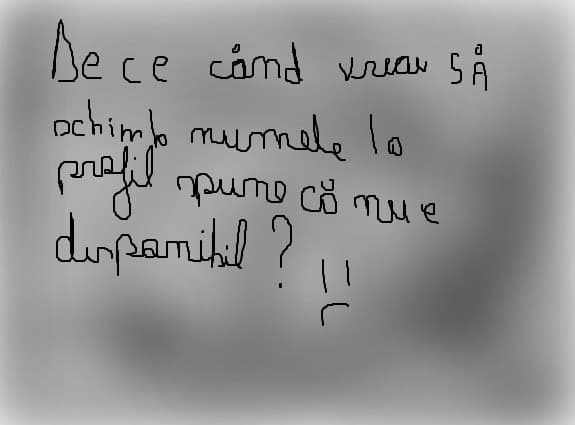 De ce când vreau SĂ
schimb numele la
profil spune că nu e
disponibil? :(